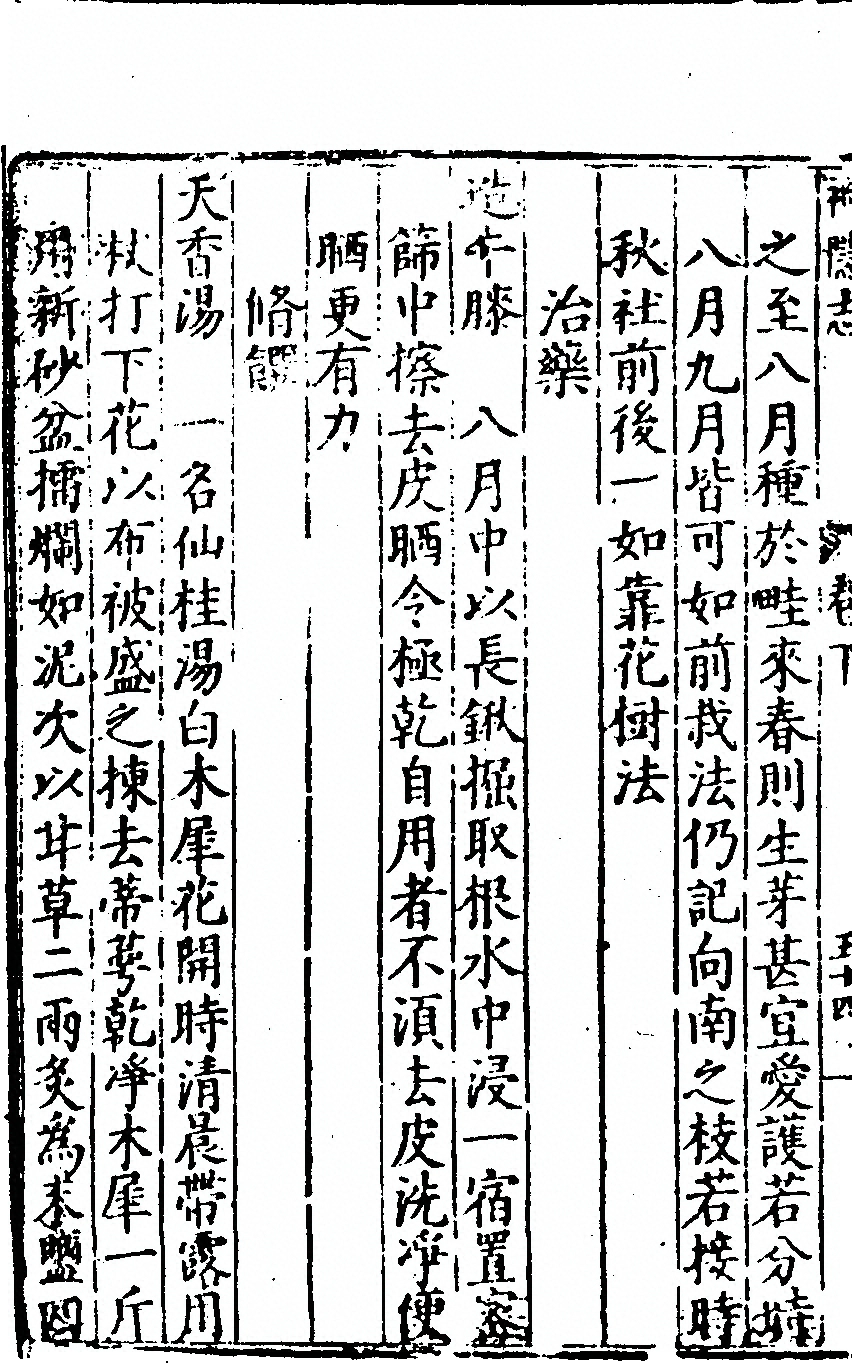 神隱志 卷下 五十四
之至八月種於畦來春則生芽甚宜愛護若分時
八月九月皆可如前栽法仍記向南之枝若接時
秋社前後一如靠花樹法
治藥
造牛膝 八月中以長鍬掘取根水中浸一宿置密
篩中擦去皮晒令極乾自用者不須去皮洗凈便
晒更有力
脩饌
天香湯 一名仙桂湯白木犀花開時清晨帶露用
杖打下花以布被盛之揀去蒂萼乾凈木犀一斤
用新砂盆擂爛如泥次以甘草二兩炙爲末鹽四